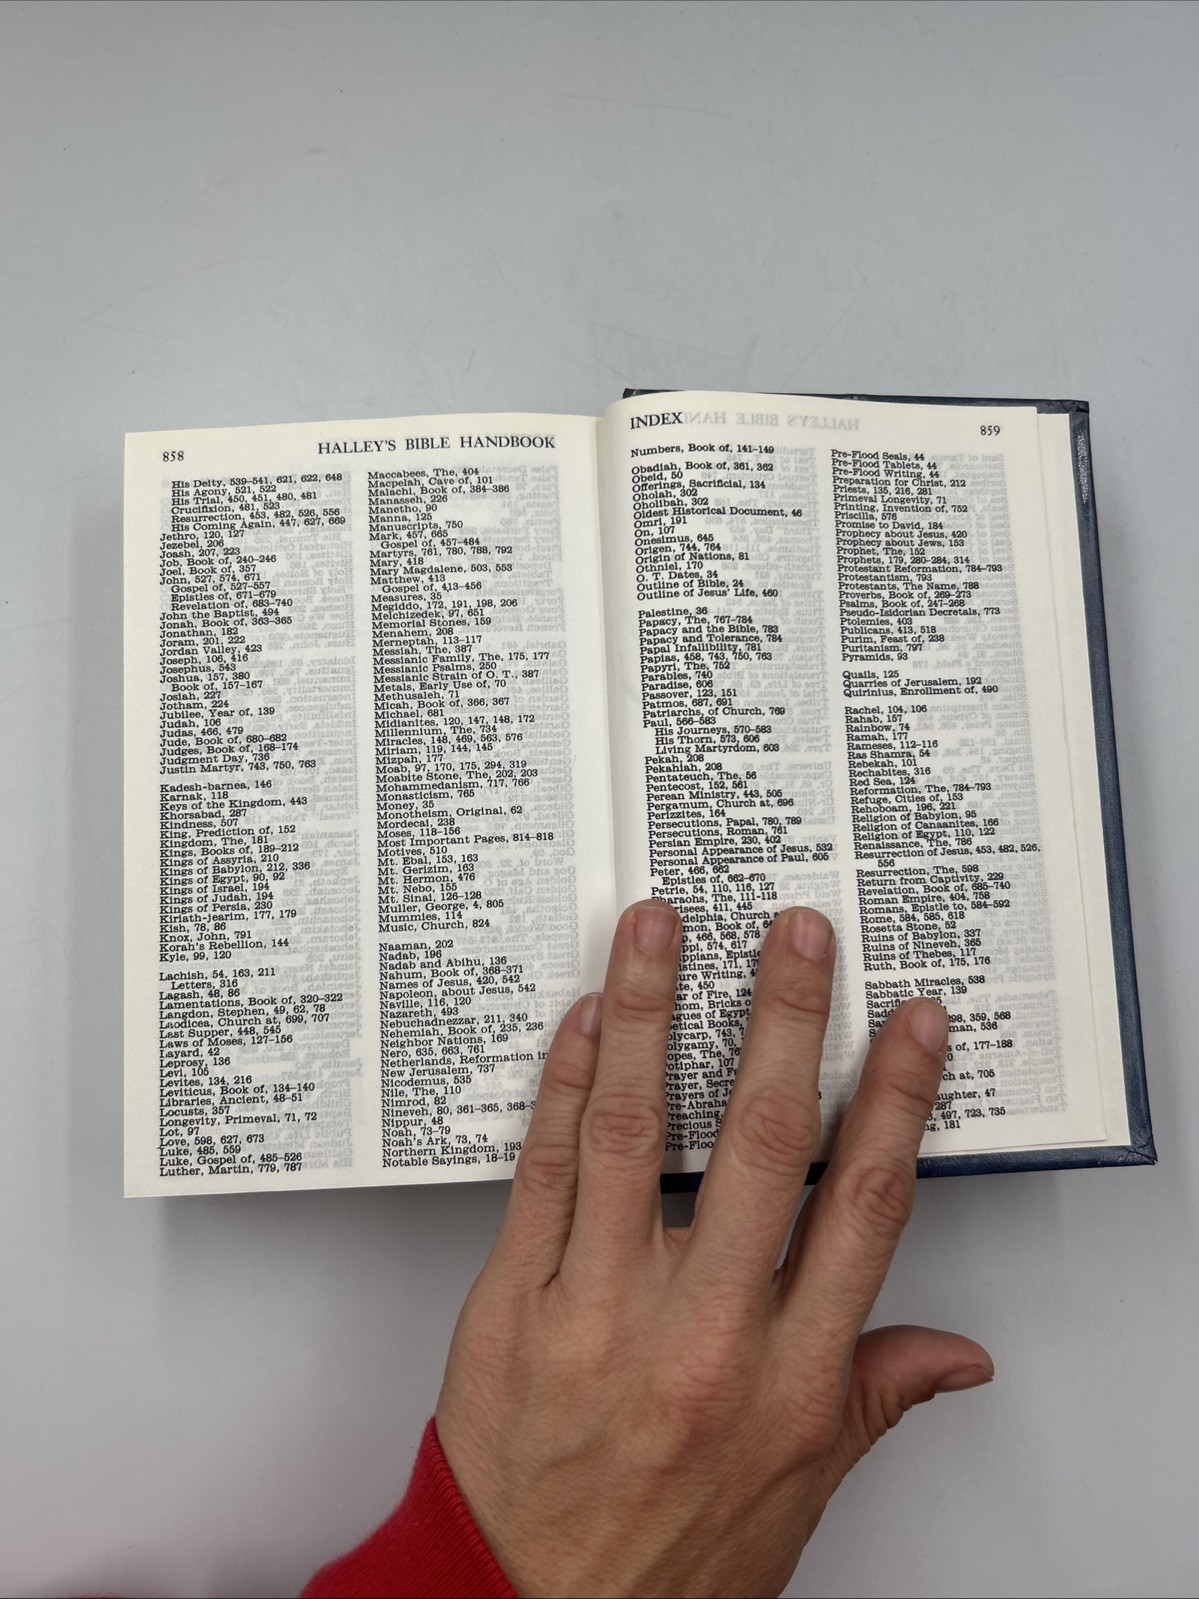 858
HALLEY'S BIBLE HANDBOOK
His Deity, 539–541, 621, 622, 648
His Agony, 521, 522
His Trial, 450, 451, 480, 481
Crucifixion, 481, 523
Resurrection, 453, 482, 526, 556
His Coming Again, 447, 627, 669
Jethro, 120, 127
Jezebel, 206
Joash, 207, 223
Job, Book of, 240–246
Joel, Book of, 357
John, 527, 574, 671
Gospel of, 527–557
Epistles of, 671–679
Revelation of, 683–740
John the Baptist, 494
Jonah, Book of, 363–365
Jonathan, 182
Joram, 201, 222
Jordan Valley, 423
Joseph, 106, 416
Josephus, 543
Joshua, 157, 380
Book of, 157–167
Josiah, 227
Jotham, 224
Jubilee, Year of, 139
Judah, 106
Judas, 466, 479
Jude, Book of, 680–682
Judges, Book of, 168–174
Judgment Day, 736
Justin Martyr, 743, 750, 763
Kadesh-barnea, 146
Karnak, 118
Keys of the Kingdom, 443
Khorsabad, 287
Kindness, 507
King, Prediction of, 152
Kingdom, The, 181
Kings, Books of, 189–212
Kings of Assyria, 210
Kings of Babylon, 212, 336
Kings of Egypt, 90, 92
Kings of Israel, 194
Kings of Judah, 194
Kings of Persia, 230
Kiriath-jearim, 177, 179
Kish, 78, 86
Knox, John, 791
Korah's Rebellion, 144
Kyle, 99, 120
Lachish, 54, 163, 211
Letters, 316
Lagash, 48, 86
Lamentations, Book of, 320–322
Langdon, Stephen, 49, 62, 78
Laodicea, Church at, 699, 707
Last Supper, 448, 545
Laws of Moses, 127–156
Layard, 42
Leprosy, 136
Levi, 105
Levites, 134, 216
Leviticus, Book of, 134–140
Libraries, Ancient, 48–51
Locusts, 357
Longevity, Primeval, 71, 72
Lot, 97
Love, 598, 627, 673
Luke, 485, 559
Luke, Gospel of, 485–526
Luther, Martin, 779, 787
Maccabees, The, 404
Macpelah, Cave of, 101
Malachi, Book of, 384–386
Manasseh, 226
Manetho, 90
Manna, 125
Manuscripts, 750
Mark, 457, 665
Gospel of, 457–484
Martyrs, 761, 780, 788, 792
Mary, 418
Mary Magdalene, 503, 553
Matthew, 413
Gospel of, 413–456
Measures, 35
Megiddo, 172, 191, 198, 206
Melchizedek, 97, 651
Memorial Stones, 159
Menahem, 208
Merneptah, 113–117
Messiah, The, 387
Messianic Family, The, 175, 177
Messianic Psalms, 250
Messianic Strain of O. T., 387
Metals, Early Use of, 70
Methusaleh, 71
Micah, Book of, 366, 367
Michael, 681
Midianites, 120, 147, 148, 172
Millennium, The, 734
Miracles, 148, 469, 563, 576
Miriam, 119, 144, 145
Mizpah, 177
Moab, 97, 170, 175, 294, 319
Moabite Stone, The, 202, 203
Mohammedanism, 717, 766
Monasticism, 765
Money, 35
Monotheism, Original, 62
Mordecai, 238
Moses, 118–156
Most Important Pages, 814–818
Motives, 510
Mt. Ebal, 153, 163
Mt. Gerizim, 163
Mt. Hermon, 476
Mt. Nebo, 155
Mt. Sinai, 126–128
Muller, George, 4, 805
Mummies, 114
Music, Church, 824
Naaman, 202
Nadab, 196
Nadab and Abihu, 136
Nahum, Book of, 368–371
Names of Jesus, 420, 542
Napoleon, about Jesus, 542
Naville, 116, 120
Nazareth, 493
Nebuchadnezzar, 211, 340
Nehemiah, Book of, 235, 236
Neighbor Nations, 169
Nero, 635, 663, 761
Netherlands, Reformation in
New Jerusalem, 737
Nicodemus, 535
Nile, The, 110
Nimrod, 82
Nineveh, 80, 361–365, 368–3
Nippur, 48
Noah, 73–79
Noah's Ark, 73, 74
Northern Kingdom, 193
Notable Sayings, 18–19
INDEX
859
Numbers, Book of, 141–149
Obadiah, Book of, 361, 362
Obeid, 50
Offerings, Sacrificial, 134
Oholah, 302
Oholibah, 302
Oldest Historical Document, 46
Omri, 191
On, 107
Onesimus, 645
Origen, 744, 764
Origin of Nations, 81
Othniel, 170
O. T. Dates, 34
Outline of Bible, 24
Outline of Jesus' Life, 460
Palestine, 36
Papacy, The, 767–784
Papacy and the Bible, 783
Papacy and Tolerance, 784
Papal Infallibility, 781
Papias, 458, 743, 750, 763
Papyri, The, 752
Parables, 740
Paradise, 606
Passover, 123, 151
Patmos, 687, 691
Patriarchs of Church, 769
Paul, 566–583
His Journeys, 570–583
His Thorn, 573, 606
Living Martyrdom, 603
Pekah, 208
Pekahiah, 208
Pentateuch, The, 56
Pentecost, 152, 561
Perean Ministry, 443, 505
Pergamum, Church at, 696
Perizzites, 164
Persecutions, Papal, 780, 789
Persecutions, Roman, 761
Persian Empire, 230, 402
Personal Appearance of Jesus, 532
Personal Appearance of Paul, 605
Peter, 466, 662
Epistles of, 662–670
Petrie, 54, 110, 116, 127
Pharaohs, The, 111–118
risees, 411, 445
adelphia, Church a
mon, Book of, 64
p, 466, 568, 578
ippi, 574, 617
ippians, Epistle
istines, 171, 17
ure Writing, 4
te, 450
ar of Fire, 124
hom, Bricks o
agues of Egypt
etical Books,
olycarp, 743, 7
olygamy, 70,
opes, The, 76
otiphar, 107
rayer and F
rayer, Secre
Prayers of Je
re-Abraha
Preaching,
Precious S
Pre-Flood
Pre-Floo
Pre-Flood Seals, 44
Pre-Flood Tablets, 44
Pre-Flood Writing, 44
Preparation for Christ, 212
Priests, 135, 216, 281
Primeval Longevity, 71
Printing, Invention of, 752
Priscilla, 576
Promise to David, 184
Prophecy about Jesus, 420
Prophecy about Jews, 153
Prophet, The, 152
Prophets, 179, 280–284, 314
Protestant Reformation, 784–793
Protestantism, 793
Protestants, The Name, 788
Proverbs, Book of, 269–273
Psalms, Book of, 247–268
Pseudo-Isidorian Decretals, 773
Ptolemies, 403
Publicans, 413, 518
Purim, Feast of, 238
Puritanism, 797
Pyramids, 93
Quails, 125
Quarries of Jerusalem, 192
Quirinius, Enrollment of, 490
Rachel, 104, 106
Rahab, 157
Rainbow, 74
Ramah, 177
Rameses, 112–116
Ras Shamra, 54
Rebekah, 101
Rechabites, 316
Red Sea, 124
Reformation, The, 784–793
Refuge, Cities of, 153
Rehoboam, 196, 221
Religion of Babylon, 95
Religion of Canaanites, 166
Religion of Egypt, 110, 122
Renaissance, The, 786
Resurrection of Jesus, 453, 482, 526,
556
Resurrection, The, 598
Return from Captivity, 229
Revelation, Book of, 685–740
Roman Empire, 404, 758
Romans, Epistle to, 584–592
Rome, 584, 585, 618
Rosetta Stone, 52
Ruins of Babylon, 337
Ruins of Nineveh, 365
Ruins of Thebes, 117
Ruth, Book of, 175, 176
Sabbath Miracles, 538
Sabbatic Year, 139
Sacrific
Sadd 398, 359, 568
Sa man, 536
s of, 177–188
ch at, 705
aughter, 47
287
, 497, 723, 735
ng, 181